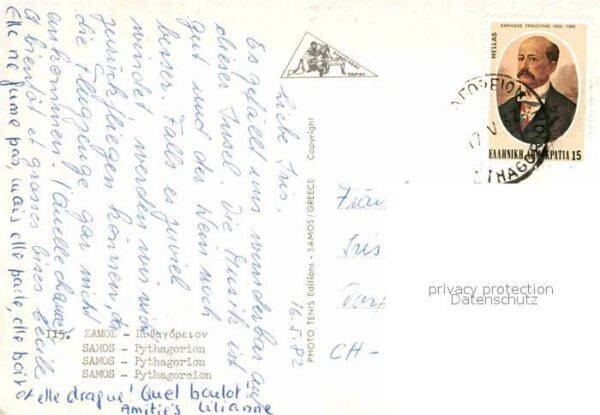 16.5.82
Liebe Iris,
Es gefällt uns wunderbar auf
dieser Insel. Die Musik ist
gut und der Wein noch
besser. Falls es zuviel
windet werden wir nicht
zurückfliegen können, da
die Flugzeuge gar nicht
ankommen. (Quelle chance)
A bientôt et grosses bises Cécile
Elle ne fume pas, mais elle parle, elle boit
et elle drague! Quel boulot!
Amitiés Lilianne
115. ΣΑΜΟΣ - Πυθαγόρειον
SAMOS - Pythagorion
SAMOS - Pythagorion
SAMOS - Pythagoreion
PHOTO TENIS Editions - SAMOS/GREECE Copyright
SAMOS
ΧΑΡΙΛΑΟΣ ΤΡΙΚΟΥΠΗΣ 1832-1896
HELLAS
ΕΛΛΗΝΙΚΗ ΔΗΜΟΚΡΑΤΙΑ 15
Iris
CH-
privacy protection
Datenschutz